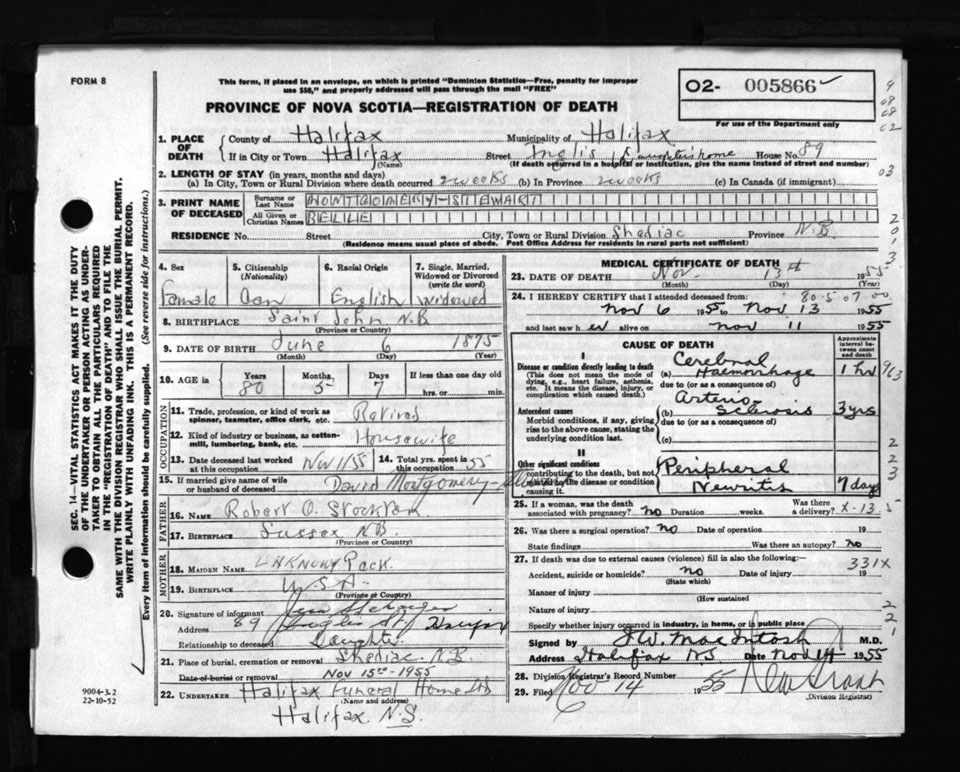 FORM 8
This form, if placed in an envelope, on which is printed "Dominion Statistics—Free, penalty for improper
use $50," and properly addressed will pass through the mail "FREE"
PROVINCE OF NOVA SCOTIA—REGISTRATION OF DEATH
O2- 005866
For use of the Department only
9
08
08
02
03
2
0
1
3
1. PLACE OF DEATH County of Halifax Municipality of Halifax
If in City or Town Halifax Street Inglis (Daughters home House No. 89
(Name) (If death occurred in a hospital or institution, give the name instead of street and number)
2. LENGTH OF STAY (in years, months and days)
(a) In City, Town or Rural Division where death occurred 2 weeks (b) In Province 2 weeks (c) In Canada (if immigrant)
3. PRINT NAME OF DECEASED Surname or Last Name MONTGOMERY-STEWART
All Given or Christian Names BELLE
RESIDENCE No. Street City, Town or Rural Division Shediac Province N.B.
(Residence means usual place of abode. Post Office Address for residents in rural parts not sufficient)
4. Sex Female
5. Citizenship (Nationality) Can
6. Racial Origin English
7. Single, Married, Widowed or Divorced (write the word) Widowed
8. BIRTHPLACE Saint John N.B
(Province or Country)
9. DATE OF BIRTH June 6 1875
(Month) (Day) (Year)
10. AGE in Years 80 Months 5 Days 7 If less than one day old hrs. or min.
OCCUPATION
11. Trade, profession, or kind of work as spinner, teamster, office clerk, etc. Retired
12. Kind of industry or business, as cotton-mill, lumbering, bank, etc. Housewife
13. Date deceased last worked at this occupation Nov 1/55 14. Total yrs. spent in this occupation 55
15. If married give name of wife or husband of deceased David Montgomery-Stewart
FATHER
16. NAME Robert O. Stockton
17. BIRTHPLACE Sussex N.B.
(Province or Country)
MOTHER
18. MAIDEN NAME Unknown Peck
19. BIRTHPLACE USA
(Province or Country)
20. Signature of informant
Address 89 Inglis St Halifax
Relationship to deceased Daughter
21. Place of burial, cremation or removal Shediac N.B.
Date of burial or removal Nov 15th - 1955
22. UNDERTAKER Halifax Funeral Home Ltd
(Name and address)
Halifax N.S.
9004-3.2
22-10-52
MEDICAL CERTIFICATE OF DEATH
23. DATE OF DEATH Nov. 13th 1955
(Month) (Day) (Year)
24. I HEREBY CERTIFY that I attended deceased from: 80.5.07.00
Nov 6 1955 to Nov 13 1955
and last saw her alive on Nov 11 1955
CAUSE OF DEATH
Approximate interval between onset and death
I
Disease or condition directly leading to death
(This does not mean the mode of dying, e.g., heart failure, asthenia, etc. It means the disease, injury, or complication which caused death.)
(a) Cerebral Haemorrhage 1 hr
due to (or as a consequence of)
963
Antecedent causes
Morbid conditions, if any, giving rise to the above cause, stating the underlying condition last.
(b) Arterio-Sclerosis 3 yrs
due to (or as a consequence of)
(c)
II
Other significant conditions
contributing to the death, but not related to the disease or condition causing it.
Peripheral Neuritis 7 days
2
2
3
25. If a woman, was the death associated with pregnancy? No Duration weeks. Was there a delivery? X-13.5
26. Was there a surgical operation? No Date of operation 19
State findings Was there an autopsy? No
27. If death was due to external causes (violence) fill in also the following:— 331X
Accident, suicide or homicide? No Date of injury 19
(State which)
Manner of injury
(How sustained
Nature of injury
Specify whether injury occurred in industry, in home, or in public place
2
2
1
Signed by J.W. MacIntosh M.D.
Address Halifax NS Date Nov 14 1955
28. Division Registrar's Record Number
29. Filed Nov 14 1955
(Division Registrar)
SEC. 14—VITAL STATISTICS ACT MAKES IT THE DUTY
OF THE UNDERTAKER OR PERSON ACTING AS UNDER-
TAKER TO OBTAIN ALL THE PARTICULARS REQUIRED
IN THE "REGISTRATION OF DEATH" AND TO FILE THE
SAME WITH THE DIVISION REGISTRAR WHO SHALL ISSUE THE BURIAL PERMIT.
WRITE PLAINLY WITH UNFADING INK. THIS IS A PERMANENT RECORD.
Every item of information should be carefully supplied. (See reverse side for instructions.)